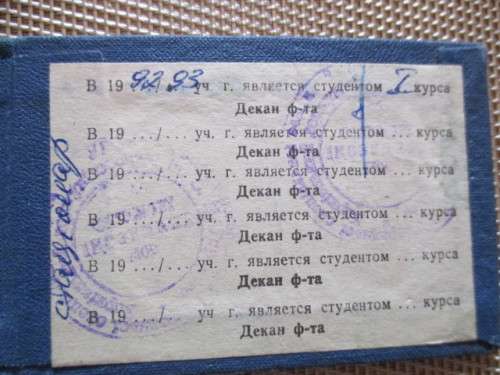 В 19 92/93 уч. г. является студентом I курса
Декан ф-та
В 19 .../... уч. г. является студентом ... курса
Декан ф-та
В 19 .../... уч. г. является студентом ... курса
Декан ф-та
В 19 .../... уч. г. является студентом ... курса
Декан ф-та
В 19 .../... уч. г. является студентом ... курса
Декан ф-та
В 19 .../... уч. г. является студентом ... курса
Декан ф-та